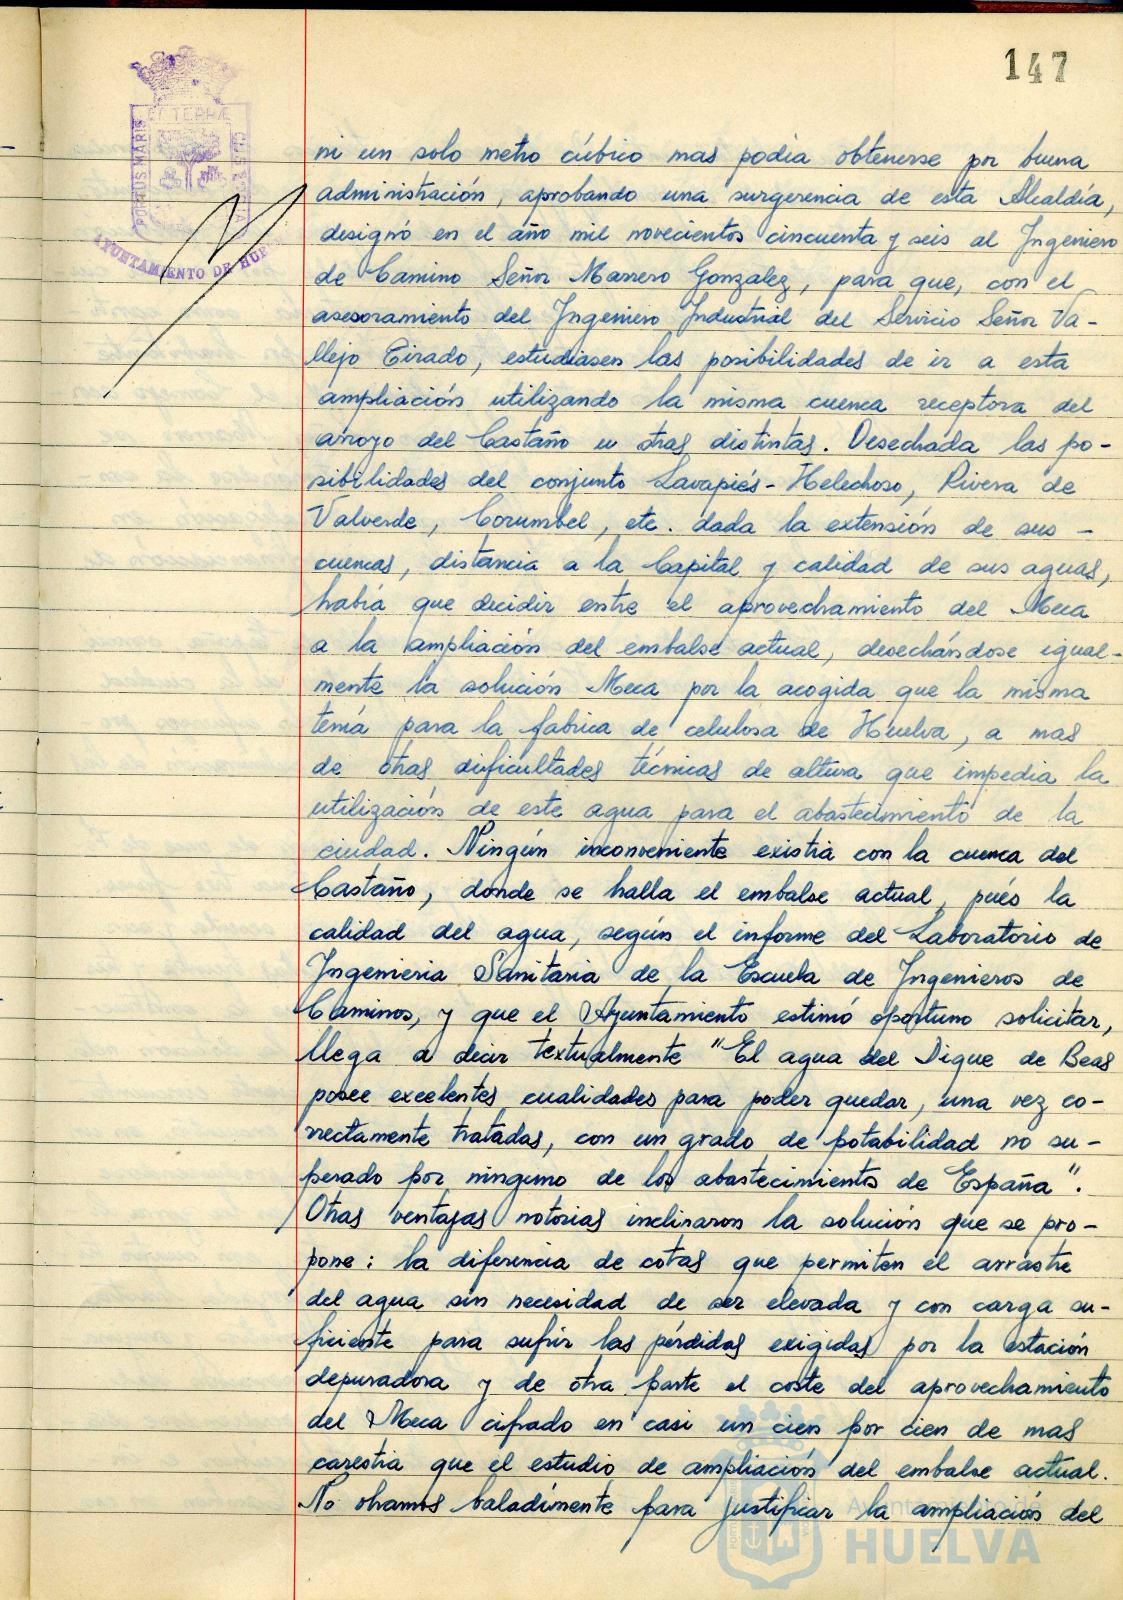 147
PORTUS MARIS ET TERRÆ CUSTODIA
AYUNTAMIENTO DE HUELVA
ni un solo metro cúbico mas podia obtenerse por buena
administración, aprobando una surgerencia de esta Alcaldía,
designó en el año mil novecientos cincuenta y seis al Ingeniero
de Camino Señor Marrero Gonzalez, para que, con el
asesoramiento del Ingeniero Industrial del Servicio Señor Va-
llejo Tirado, estudiasen las posibilidades de ir a esta
ampliación utilizando la misma cuenca receptora del
arroyo del Castaño u otras distintas. Desechada las po-
sibilidades del conjunto Lavapiés-Helechoso, Rivera de
Valverde, Corumbel, etc. dada la extensión de sus -
cuencas, distancia a la Capital y calidad de sus aguas,
había que decidir entre el aprovechamiento del Meca
a la ampliación del embalse actual, desechándose igual-
mente la solución Meca por la acogida que la misma
tenía para la fabrica de celulosa de Huelva, a mas
de otras dificultades técnicas de altura que impedia la
utilización de este agua para el abastecimiento de la
ciudad. Ningún inconveniente existía con la cuenca del
Castaño, donde se halla el embalse actual, pués la
calidad del agua, según el informe del Laboratorio de
Ingenieria Sanitaria de la Escuela de Ingenieros de
Caminos, y que el Ayuntamiento estimó oportuno solicitar,
llega a decir textualmente "El agua del Dique de Beas
posee excelentes cualidades para poder quedar, una vez co-
rrectamente tratadas, con un grado de potabilidad no su-
perado por ninguno de los abastecimientos de España".
Otras ventajas notorias inclinaron la solución que se pro-
pone: la diferencia de cotas que permiten el arrastre
del agua sin necesidad de ser elevada y con carga su-
ficiente para sufrir las pérdidas exigidas por la estación
depuradora y de otra parte el coste del aprovechamiento
del Meca cifrado en casi un cien por cien de mas
carestía que el estudio de ampliación del embalse actual.
No obramos baladímente para justificar la ampliación del
Ayuntamiento de
HUELVA